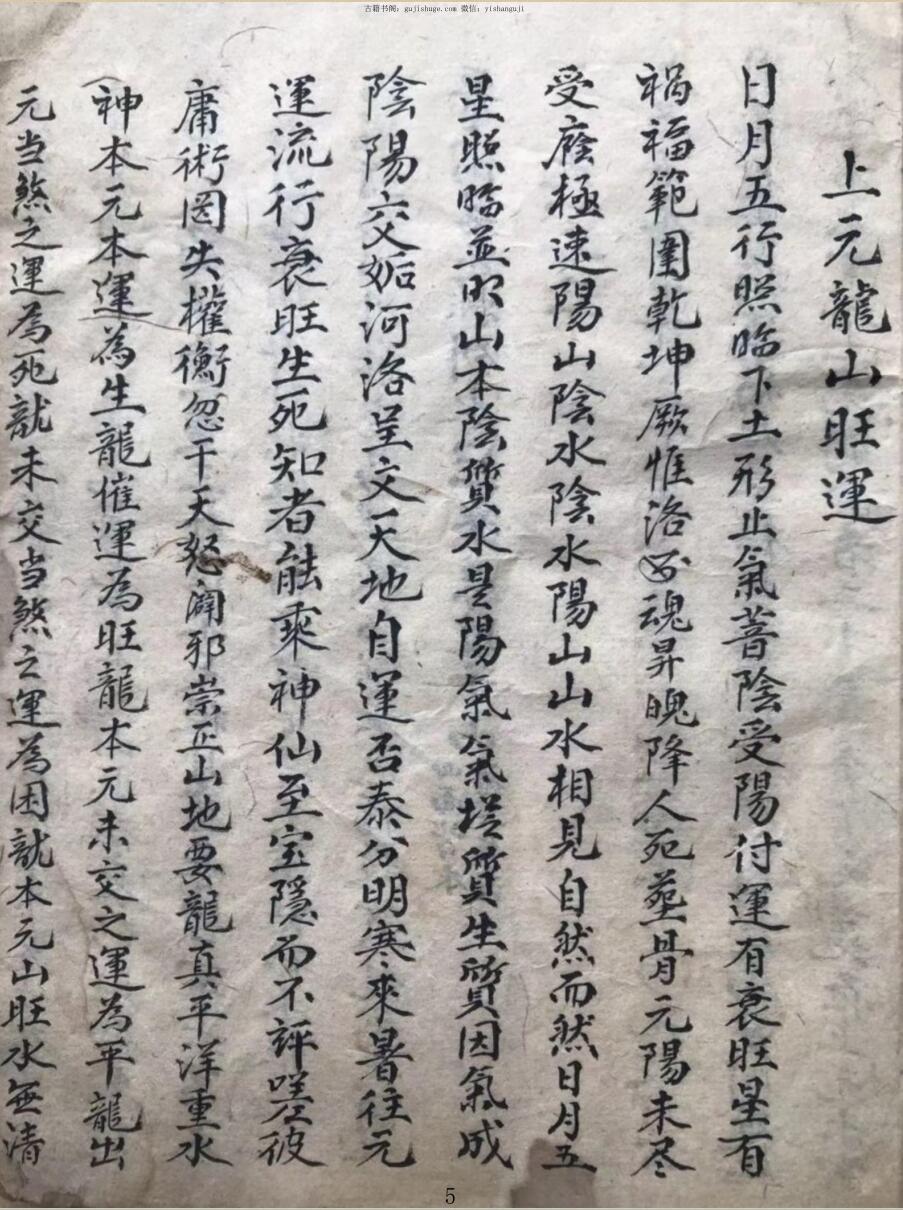 古籍书阁：gujishuge.com 微信：yishanguji
上元龍山旺運
日月五行照临下土形止氣蓄陰受陽付運有衰旺星有
禍福範圍乾坤厥惟洛魂昇魄降人死塟骨元陽未尽
受廕極速陽山陰水陰水陽山山水相見自然而然日月五
星照临並明山本陰質水是陽氣氣從質生質因氣成
陰陽交姤河洛呈文天地自運否泰分明寒來暑往元
運流行衰旺生死知者能乘神仙至宝隱而不評嗟彼
庸術罔失權衡忽干天怒闢邪崇正山地要龍真平洋重水
神本元本運為生龍催運為旺龍本元未交之運為平龍出
元当煞之運為死龍未交当煞之運為困龍本元山旺水無清
5